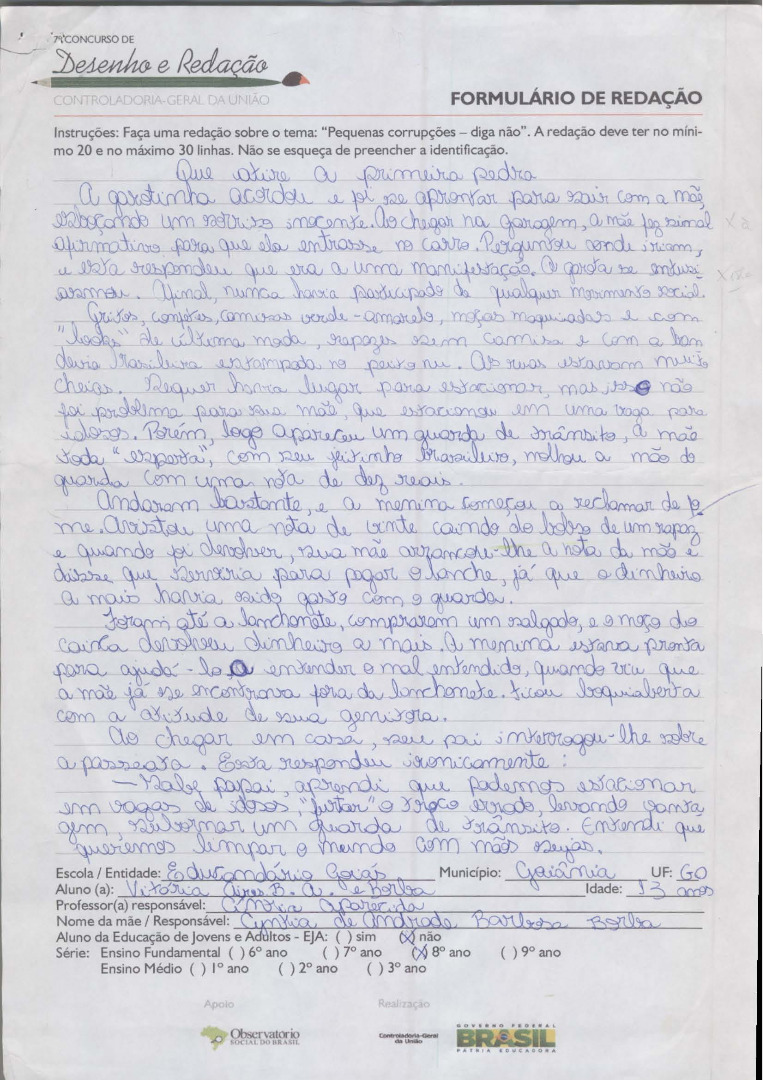 7º CONCURSO DE
Desenho e Redação
CONTROLADORIA-GERAL DA UNIÃO
FORMULÁRIO DE REDAÇÃO
Instruções: Faça uma redação sobre o tema: “Pequenas corrupções – diga não”. A redação deve ter no míni-
mo 20 e no máximo 30 linhas. Não se esqueça de preencher a identificação.
Que atire a primeira pedra
A garotinha acordou e foi se aprontar para sair com a mãe,
esboçando um sorriso inocente. Ao chegar na garagem, a mãe fez sinal
afirmativo para que ela entrasse no carro. Perguntou aonde iriam,
e esta respondeu que era a uma manifestação. A garota se entusi
asmou. Afinal, nunca havia participado de qualquer movimento social.
Gritos, confetes, camisas verde-amarelo, moças maquiadas e com
"looks" de última moda, rapazes sem camisa e com a ban
deira brasileira estampada no peito nu. As ruas estavam muito
cheias. Sequer havia lugar para estacionar, mas isso não
foi problema para sua mãe, que estacionou em uma vaga para
idosos. Porém, logo apareceu um guarda de trânsito, a mãe
toda "esperta", com seu jeitinho brasileiro, molhou a mão do
guarda com uma nota de dez reais.
Andaram bastante, e a menina começou a reclamar de fo
me. Avistou uma nota de vinte caindo do bolso de um rapaz
e quando foi devolver, sua mãe arrancou-lhe a nota da mão e
disse que serviria para pagar o lanche, já que o dinheiro
a mais havia sido gasto com o guarda.
Foram até a lanchonete, compraram um salgado, e o moço do
caixa devolveu dinheiro a mais. A menina estava pronta
para ajudá-lo a entender o mal entendido, quando viu que
a mãe já se encontrava fora da lanchonete. Ficou boquiaberta
com a atitude de sua genitora.
Ao chegar em casa, seu pai interrogou-lhe sobre
a passeata. Esta respondeu ironicamente:
— Sabe papai, aprendi que podemos estacionar
em vagas de idosos, "furtar" o troco errado, levando vanta
gem, subornar um guarda de trânsito. Entendi que
queremos limpar o mundo com mãos sujas.
Escola / Entidade: Educandário Goiás Município: Goiânia UF: GO
Aluno (a): Vitória Aires B. A. e Borba Idade: 13 anos
Professor(a) responsável: Cíntia Aparecida
Nome da mãe / Responsável: Cynthia de Andrade Barbosa Borba
Aluno da Educação de Jovens e Adultos - EJA: ( ) sim (X) não
Série: Ensino Fundamental ( ) 6º ano ( ) 7º ano (X) 8º ano ( ) 9º ano
Ensino Médio ( ) 1º ano ( ) 2º ano ( ) 3º ano
Apoio Realização
Observatório
SOCIAL DO BRASIL
Controladoria-Geral
da União
GOVERNO FEDERAL
BRASIL
PÁTRIA EDUCADORA